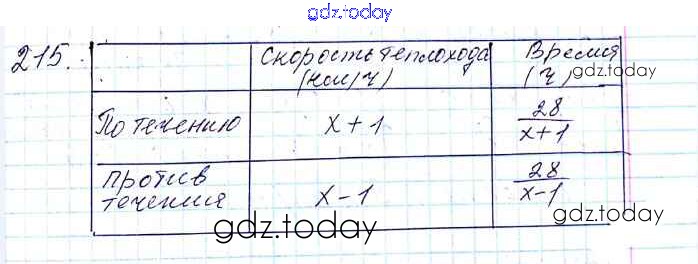 gdz.today
215.
Скорость теплохода Время
(км/ч) (ч)
gdz.today
По течению x+1 28/x+1
против
течения x-1 28/x-1
gdz.today gdz.today